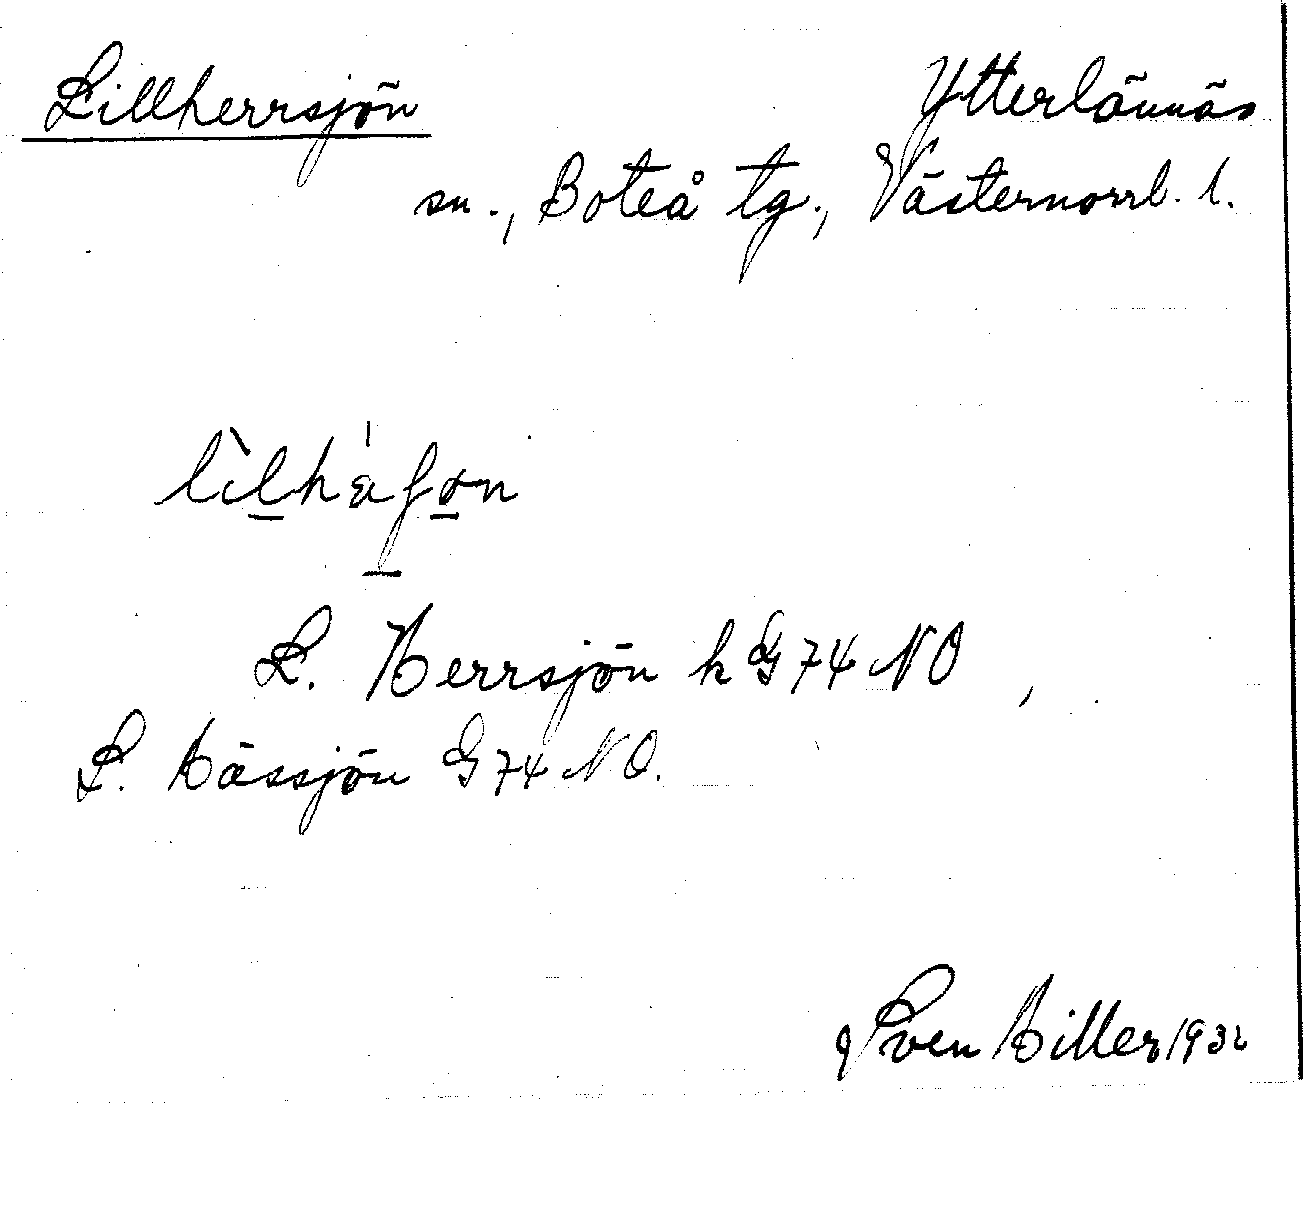 Lillherrsjön Ytterlännäs
sn., Boteå tg., Västernorrl. l.
L. Herrsjön k G74 NO,
L. Hässjön G74 NO.
Sven Hiller 1932